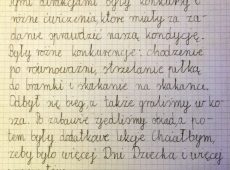 nymi atrakcjami były konkursy i
różne ćwiczenia, które miały za za-
danie sprawdzić naszą kondycję.
Były różne konkurencje: chodzenie
po równoważni, strzelanie piłką
do bramki i skakanie na skakance.
Odbył się bieg, a także graliśmy w ko-
sza. Po zabawie zjedliśmy obiad, a po-
tem były dodatkowe lekcje. Chciałbym,
żeby było więcej Dni Dziecka i więcej